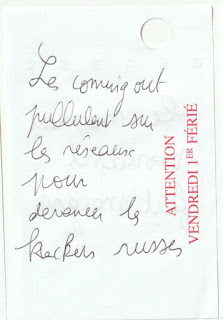 Les coming out
pullulent sur
les réseaux
pour
devancer les
hackers russes
ATTENTION
VENDREDI 1ER FÉRIÉ